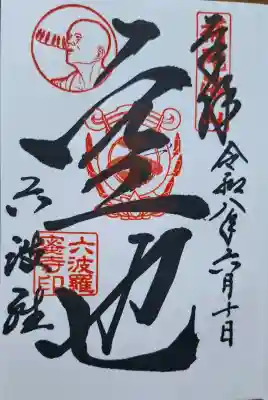 奉拝
令和八年六月十日
空也
六波羅
六波羅
蜜寺印